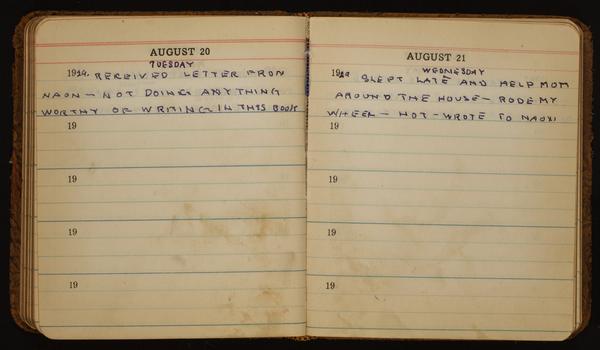 AUGUST 20
TUESDAY
1929. RECEIVED LETTER FROM
NAOMI — NOT DOING ANYTHING
WORTHY OF WRITING IN THIS BOOK
19
19
19
19
AUGUST 21
WEDNESDAY
1929 SLEPT LATE AND HELP MOM
AROUND THE HOUSE — RODE MY
WHEEL — HOT — WROTE TO NAOMI
19
19
19
19